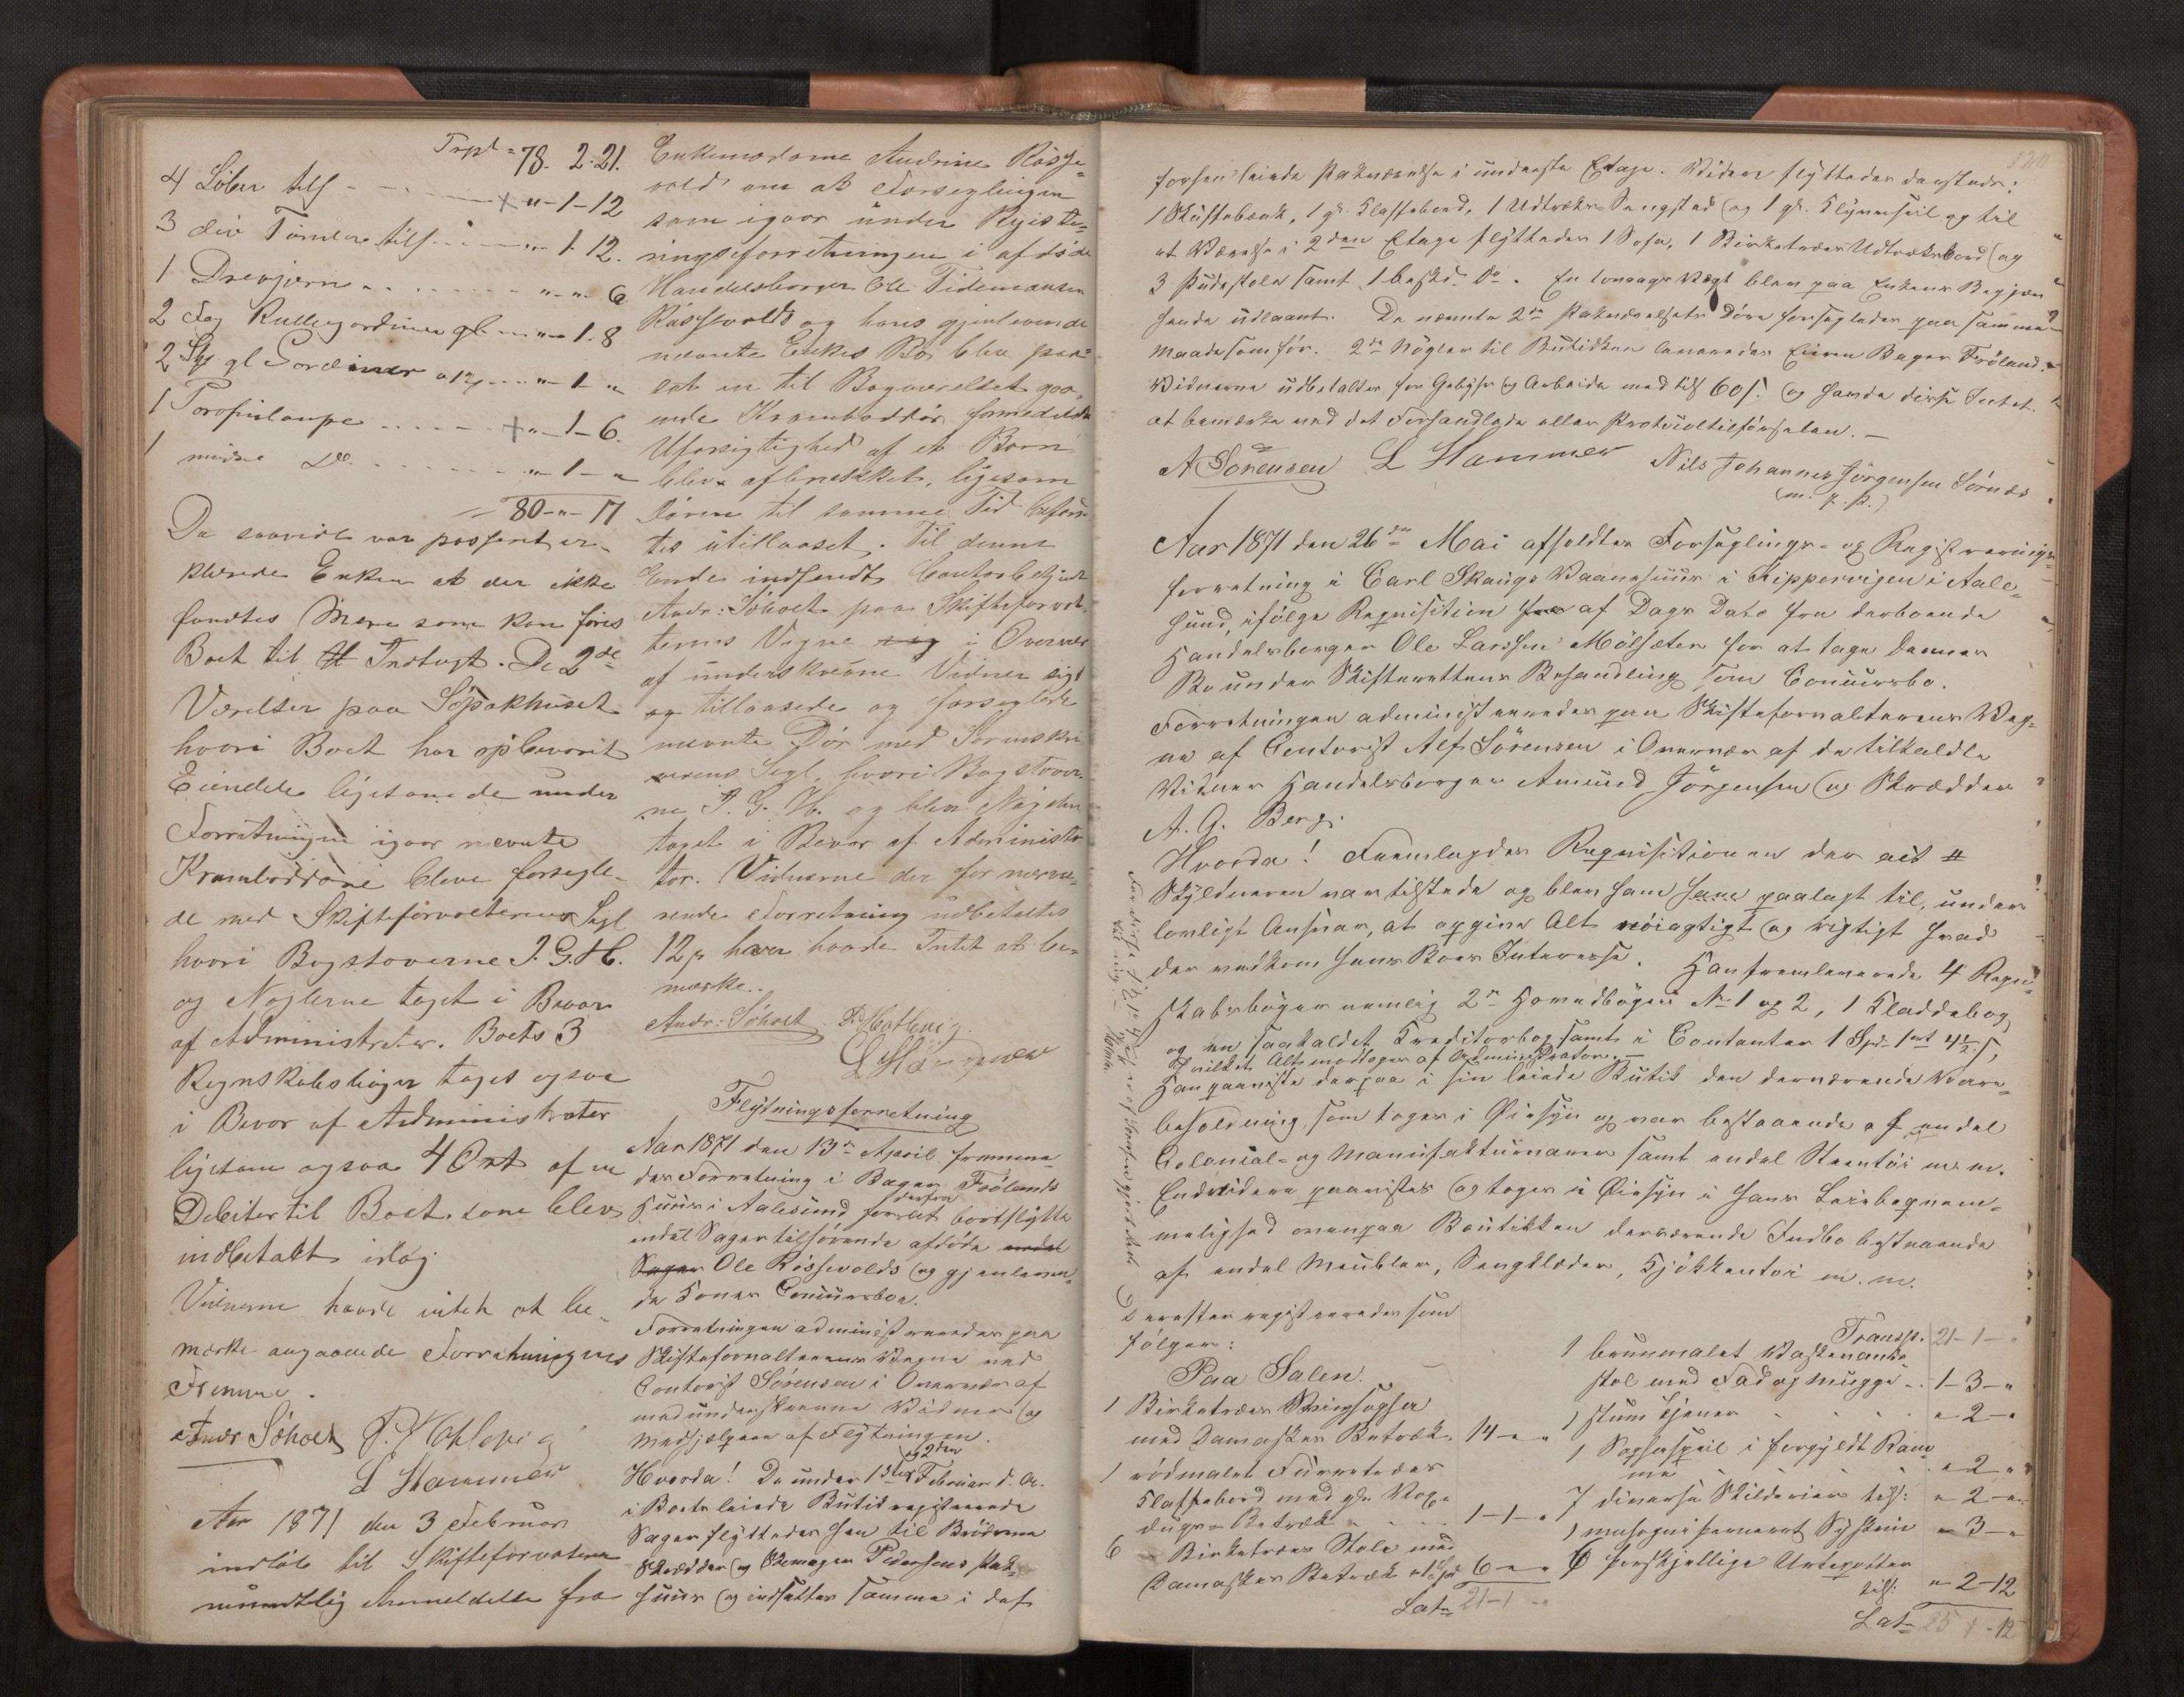 Trpt = 78. 2. 21.
4 Løber tils - - - + " - 1 - 12
3 div Tønder tils - - - " - 1 - 12.
1 Drevjern - - - " - " - 6
2 Fag Rullegardiner gl - - - " - 1 - 8
2 Stk gl Gardiner a 12 - - - " - 1 - "
1 - - - + " - 1 - 6.
1 mindre Do. - - - " - 1 - "
= 80 - " - 17
Da saavidt var passert er-
klærede Enken at der ikke
fandtes Mere som kan føres
Boet til Indtægt. De 2de
Værelser paa Søpakhuset
hvori Boet har opbevaret
Eiendele ligesom de under
Forretningen igaar nævnte
Kramboddøre bleve forsegle-
de med Skifteforvalterens Segl
hvori Bogstaverne J. G. H.
og Nøglerne taget i Bevar
af Administrator. Boets 3
Regnskabsbøger toges ogsaa
i Bevar af Administrator
ligesom ogsaa 4 Ort af en
Debitor til Boet, som blev
indbetalt idag.
Vidnerne havde intet at be-
mærke angaaende Forretningens
Fremme.
Andr Søholt
L Hammer
Aar 1871 den 3 Februar
indløb til Skifteforvalteren
mundtlig Anmeldelse fra
Enkemadame Andrine Røsse-
vold om at Forseglingen
som igaar under Registe-
ringsforretningen i afdøde
Handelsborger Ole Tidemansen
Røssevolds og hans gjenlevende
nævnte Enkes Bo blev paa-
sat en til Bagværelset gaa-
ende Kramboddør formedelst
Uforsigtighed af et Barn
blev afbrækket, ligesom
Døren til samme Tid befand-
tes utillaaset. Til denne
Ende indfandt Contorbetjent
Andr: Søholt paa Skifteforval-
terens Vegne sig i Overvær
af underskrevne Vidner sig
og tillaasede og forseglede
nævnte Dør med Sorenskri-
verens Segl, hvori Bogstaver-
ne J. G. H. og blev Nøglen
taget i Bevar af Administra-
tor. Vidnerne der for nærvæ-
rende Forretning udbetaltes
12 s hver havde Intet at be-
mærke.
Andr: Søholt
L Hammer
Flytningsforretning
Aar 1871 den 13de April fremme-
des Forretning i Bager Frölands
Huus i Aalesund for derfra at bortflytte
endel Sager tilhörende afdöde endel
Sager Ole Rössevolds og gjenleven-
de Kones Concursboe.
Forretningen administreredes paa
Skifteforvalterens Vegne ved
Contorist Sörensen i Overvær af
medunderskrevne Vidner og
Medhjælpere af Flytningen.
Hvorda! De under 1ste og 2den Februar d. A.
i Boets leiede Butik registrerede
Sager flyttedes hen til Brödrene
Skrædder og Skomager Pedersens Pak-
huus og indsattes samme i det
120
forhen leiede Pakværelse i underste Etage. Videre flyttedes dersteds:
1 Skuffebænk, 1 gl. Klaffebord, 1 Udtræks-Sengsted og 1 gl. og til
et Værelse i 2den Etage flyttedes 1 Sofa, 1 Birketræes Udtræksbord og
3 Pudestole samt 1 beskd. Do. En blev paa Enkens Begjæ-
rende udlaant. De nævnte 2de Pakværelsers Döre forsegledes paa samme
Maade som för. 2de Nögler til Butikken leveredes Eieren Bager Fröland.
Vidnerne udbetaltes for Gebyhr og Arbeide med tils 60 s. og havde disse Intet
at bemærke ved det Forhandlede eller Protocoltilförselen. –
A Sörensen L Hammer Nils Johannes Jörgensen Sörnes
(m. p. p.)
Aar 1871 den 26de Mai afholdtes Forseglings- og Registrerings-
forretning i Carl Skaugs Vaaningshuus i Kippervigen i Aale-
sund, ifölge Requisition af Dags Dato fra derboende
Handelsborger Ole Larssen Mölsæter for at tage dennes
Bo under Skifterettens Behandling som Concursbo.
Forretningen administreredes paa Skifteforvalterens Veg-
ne af Contorist Alf Sörensen i Overvær af de tilkaldte
Vidner Handelsborger Amund Jörgensen og Skrædder
A. G. Berg.
Hvorda! Fremlagdes Requisitionen der #
Skyldneren var tilstede og blev ham paalagt til, under
lovligt Ansvar, at opgive Alt nöiagtigt og rigtigt hvad
der vedkom hans Boes Interesse. Han fremleverede 4 Regn-
skabsböger nemlig 2de Hovedböger No 1 og 2, 1 Kladdebog,
og en saakaldet Creditorbog samt i Contanter 1 Spd. 1 ort 4½ s,
hvilket Alt modtoges af Administrator. –
Han paaviste derpaa i sin leiede Butik den derværende Vare-
beholdning, som toges i Öiesyn og var bestaaende af endel
Colonial- og Manufakturvarer samt endel Steentöi m. m.
Endvidere paavistes og toges i Öiesyn i hans Leiebeqvem-
melighed ovenpaa Boutikken derværende Indbo bestaaende
af endel Meubler, Sengklæder, Kjökkentöi m. m.
Derefter registreredes som
fölger:
Paa Salen.
1 Birketræes
med Damaskes Betræk. 14 - " - "
1 rödmalet Furretræes
Klaffebord med gl. Vox-
dugs-Betræk - - - 1 - 1 - "
6 Birketræes Stole med
Damaskes Betræk a 1 Spd 6 - " - "
Lats. 21 - 1 - "
Transp. 21 - 1 - "
1 bruunmalet Vaskevands-
stol med Fad og Mugge - 1 - 3 - "
1 stum Tjener - - " - 2 - "
1 i forgyldt Ram-
me " - 2 - "
7 diverse Skilderier tils: " - 2 - "
1 " - 3 - "
6 forskjellige Urtepotter
tils: " - 2 - 12
Lats. 25 - 1 - 12